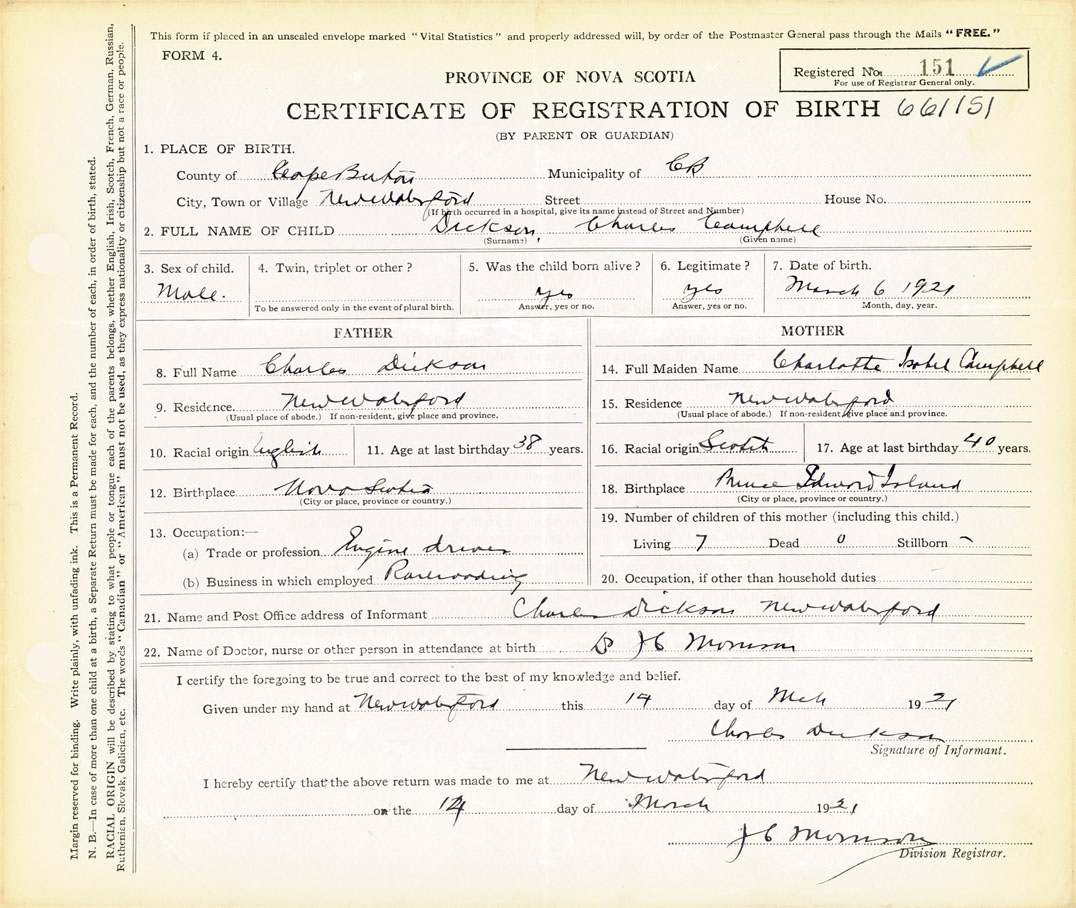 This form if placed in an unsealed envelope marked "Vital Statistics" and properly addressed will, by order of the Postmaster General pass through the Mails "FREE."
FORM 4.
Registered No. 151
For use of Registrar General only.
PROVINCE OF NOVA SCOTIA
CERTIFICATE OF REGISTRATION OF BIRTH 661151
(BY PARENT OR GUARDIAN)
1. PLACE OF BIRTH.
County of Cape Breton Municipality of CB
City, Town or Village New Waterford Street House No.
(If birth occurred in a hospital, give its name instead of Street and Number)
2. FULL NAME OF CHILD Dickson, Charles Campbell
(Surname) (Given name)
3. Sex of child. 4. Twin, triplet or other? 5. Was the child born alive? 6. Legitimate? 7. Date of birth.
Male. yes yes March 6 1921
To be answered only in the event of plural birth. Answer, yes or no. Answer, yes or no. Month, day, year.
FATHER
8. Full Name Charles Dickson
9. Residence New Waterford
(Usual place of abode.) If non-resident, give place and province.
10. Racial origin English 11. Age at last birthday 38 years.
12. Birthplace Nova Scotia
(City or place, province or country.)
13. Occupation:—
(a) Trade or profession Engine driver
(b) Business in which employed Railroading
MOTHER
14. Full Maiden Name Charlotte Isobel Campbell
15. Residence New Waterford
(Usual place of abode.) If non-resident, give place and province.
16. Racial origin Scotch 17. Age at last birthday 40 years.
18. Birthplace Prince Edward Island
(City or place, province or country.)
19. Number of children of this mother (including this child.)
Living 7 Dead 0 Stillborn –
20. Occupation, if other than household duties
21. Name and Post Office address of Informant Charles Dickson New Waterford
22. Name of Doctor, nurse or other person in attendance at birth Dr J C Morrison
I certify the foregoing to be true and correct to the best of my knowledge and belief.
Given under my hand at New Waterford this 14 day of Mch 1921
Charles Dickson
Signature of Informant.
I hereby certify that the above return was made to me at New Waterford
on the 14 day of March 1921
J C Morrison
Division Registrar.
Margin reserved for binding. Write plainly, with unfading ink. This is a Permanent Record.
N. B.—In case of more than one child at a birth, a Separate Return must be made for each, and the number of each, in order of birth, stated.
RACIAL ORIGIN will be described by stating to what people or tongue each of the parents belongs, whether English, Irish, Scotch, French, German, Russian,
Ruthenian, Slovak, Galician, etc. The words "Canadian" or "American" must not be used, as they express nationality or citizenship but not a race or people.